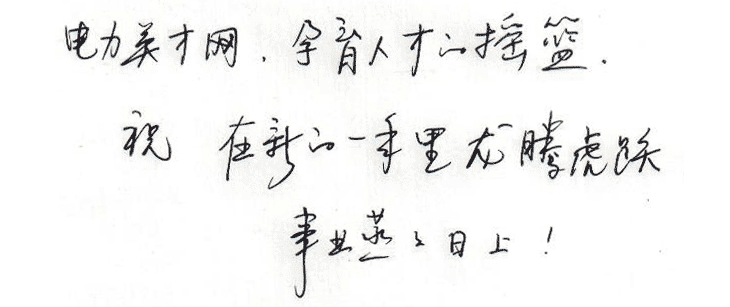 电力英才网.孕育人才的摇篮.
祝 在新的一年里龙腾虎跃
事业蒸々日上!